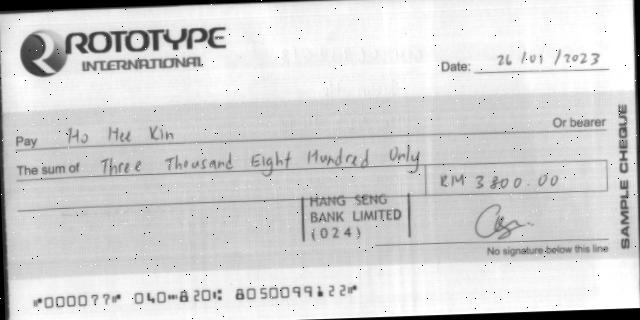 ROTOTYPE
INTERNATIONAL
Date: 26/01/2023
Pay Ho Mee Kin Or bearer
The sum of Three Thousand Eight Hundred Only
RM 3800.00
HANG SENG
BANK LIMITED
(024)
No signature below this line
SAMPLE CHEQUE
⑈000077⑈ 040⑉820⑆ 8050099122⑈